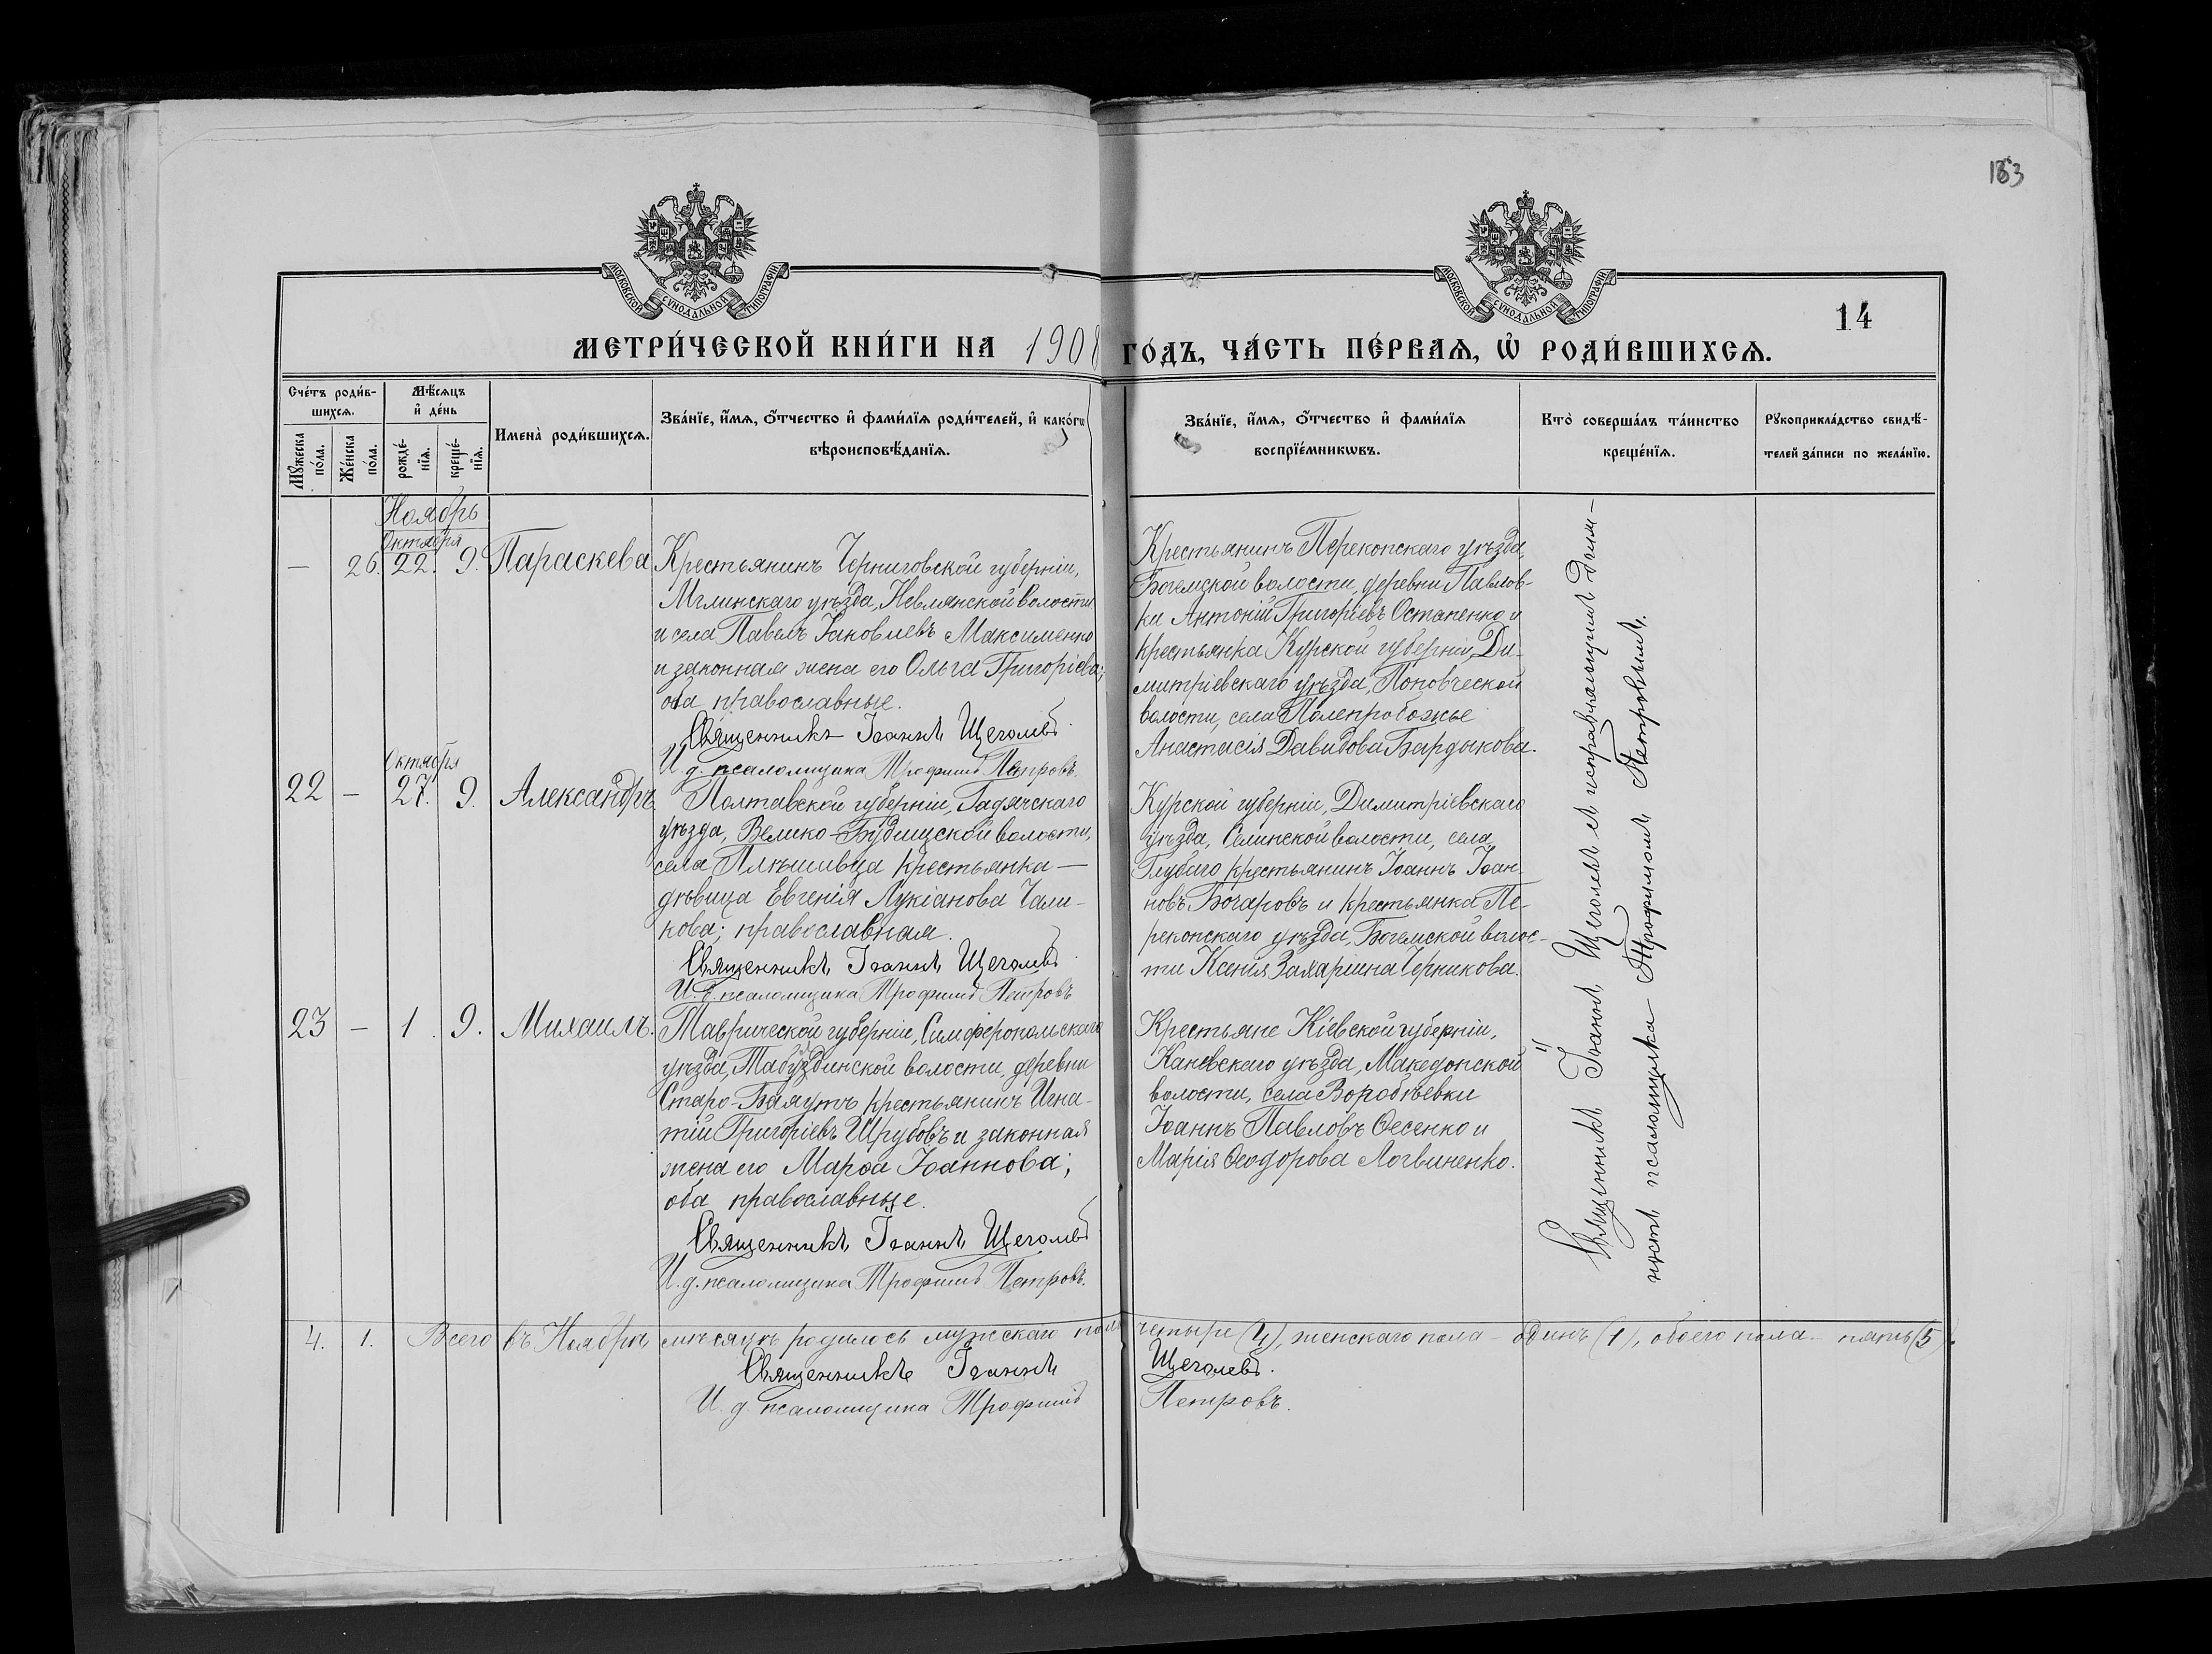 163
МОСКОВСКОЙ СѴНОДАЛЬНОЙ ТИПОГРАФІИ
МОСКОВСКОЙ СѴНОДАЛЬНОЙ ТИПОГРАФІИ
14
МЕТРИ́ЧЕСКОЙ КНИ́ГИ НА 1908 ГО́ДЪ, ЧА́СТЬ ПЕ́РВАѦ, Ѡ҆ РОДИ́ВШИХСѦ.
Сче́тъ роди́в-
шихсѧ.
Мꙋ́жеска
по́ла.
Же́нска
по́ла.
Мѣ́сѧцъ
и҆ де́нь
рожде́-
нїѧ.
креще́-
нїѧ.
Имена̀ роди́вшихсѧ.
Зва́нїе, и҆́мѧ, ѻ҆́тчество и҆ фами́лїѧ роди́телей, и҆ како́гѡ
вѣроисповѣ́данїѧ.
Зва́нїе, и҆́мѧ, ѻ҆́тчество и҆ фами́лїѧ
воспрїе́мникѡвъ.
Кто̀ соверша́лъ та́инство
креще́нїѧ.
Рꙋкоприкла́дство свидѣ́-
телей за́писи по жела́нїю.
Ноябрь
Октября
— 26. 22. 9. Параскева
Крестьянинъ Черниговской губерніи,
Мглинскаго уѣзда, Невлянской волости
и села Павелъ Іаковлевъ Максименко
и законная жена его Ольга Григоріева;
оба православные.
Священникъ Іоаннъ Щеголевъ
И. д. псаломщика Трофимъ Петровъ.
Крестьянинъ Перекопскаго уѣзда,
Богемской волости, деревни Павлов-
ки Антоній Григоріевъ Остапенко и
крестьянка Курской губерніи, Ди-
митріевскаго уѣзда, Поповческой
волости, села Поленробожье
Анастасія Давидова Бардыкова.
Октября
22 — 27. 9. Александръ
Полтавской губерніи, Гадячскаго
уѣзда, Велико-Будищской волости,
села Плѣшивца крестьянка —
дѣвица Евгенія Лукіанова Чали-
кова; православная.
Священникъ Іоаннъ Щеголевъ
И. д. псаломщика Трофимъ Петровъ
Курской губерніи, Димитріевскаго
уѣзда, Селинской волости, села
Глубаго крестьянинъ Іоаннъ Іоан-
новъ Бочаровъ и крестьянка Пе-
рекопскаго уѣзда, Богемской волос-
ти Ксенія Захаріина Черникова.
23 — 1 9. Михаилъ.
Таврической губерніи, Симферопольскаго
уѣзда, Табулдинской волости, деревни
Старо-Баяутъ крестьянинъ Игна-
тій Григоріевъ Шрубовъ и законная
жена его Марѳа Іоаннова;
оба православные.
Священникъ Іоаннъ Щеголевъ
И. д. псаломщика Трофимъ Петровъ.
Крестьяне Кіевской губерніи,
Каневскаго уѣзда, Македонской
волости, села Воробьевки
Іоаннъ Павловъ Ѳесенко и
Марія Ѳеодорова Логвиненко.
Священникъ Іоаннъ Щеголевъ съ исправляющимъ долж-
ность псаломщика Трофимомъ Петровымъ.
4. 1. Всего въ Ноябрѣ мѣсяцѣ родилось мужскаго пола четыре (4), женскаго пола - одинъ (1), обоего пола - пять (5).
Священникъ Іоаннъ Щеголевъ.
И. д. псаломщика Трофимъ Петровъ.